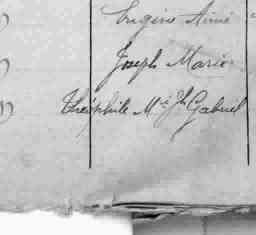 Eugène Aimé
Joseph Marie
Théophile M. Jh Gabriel